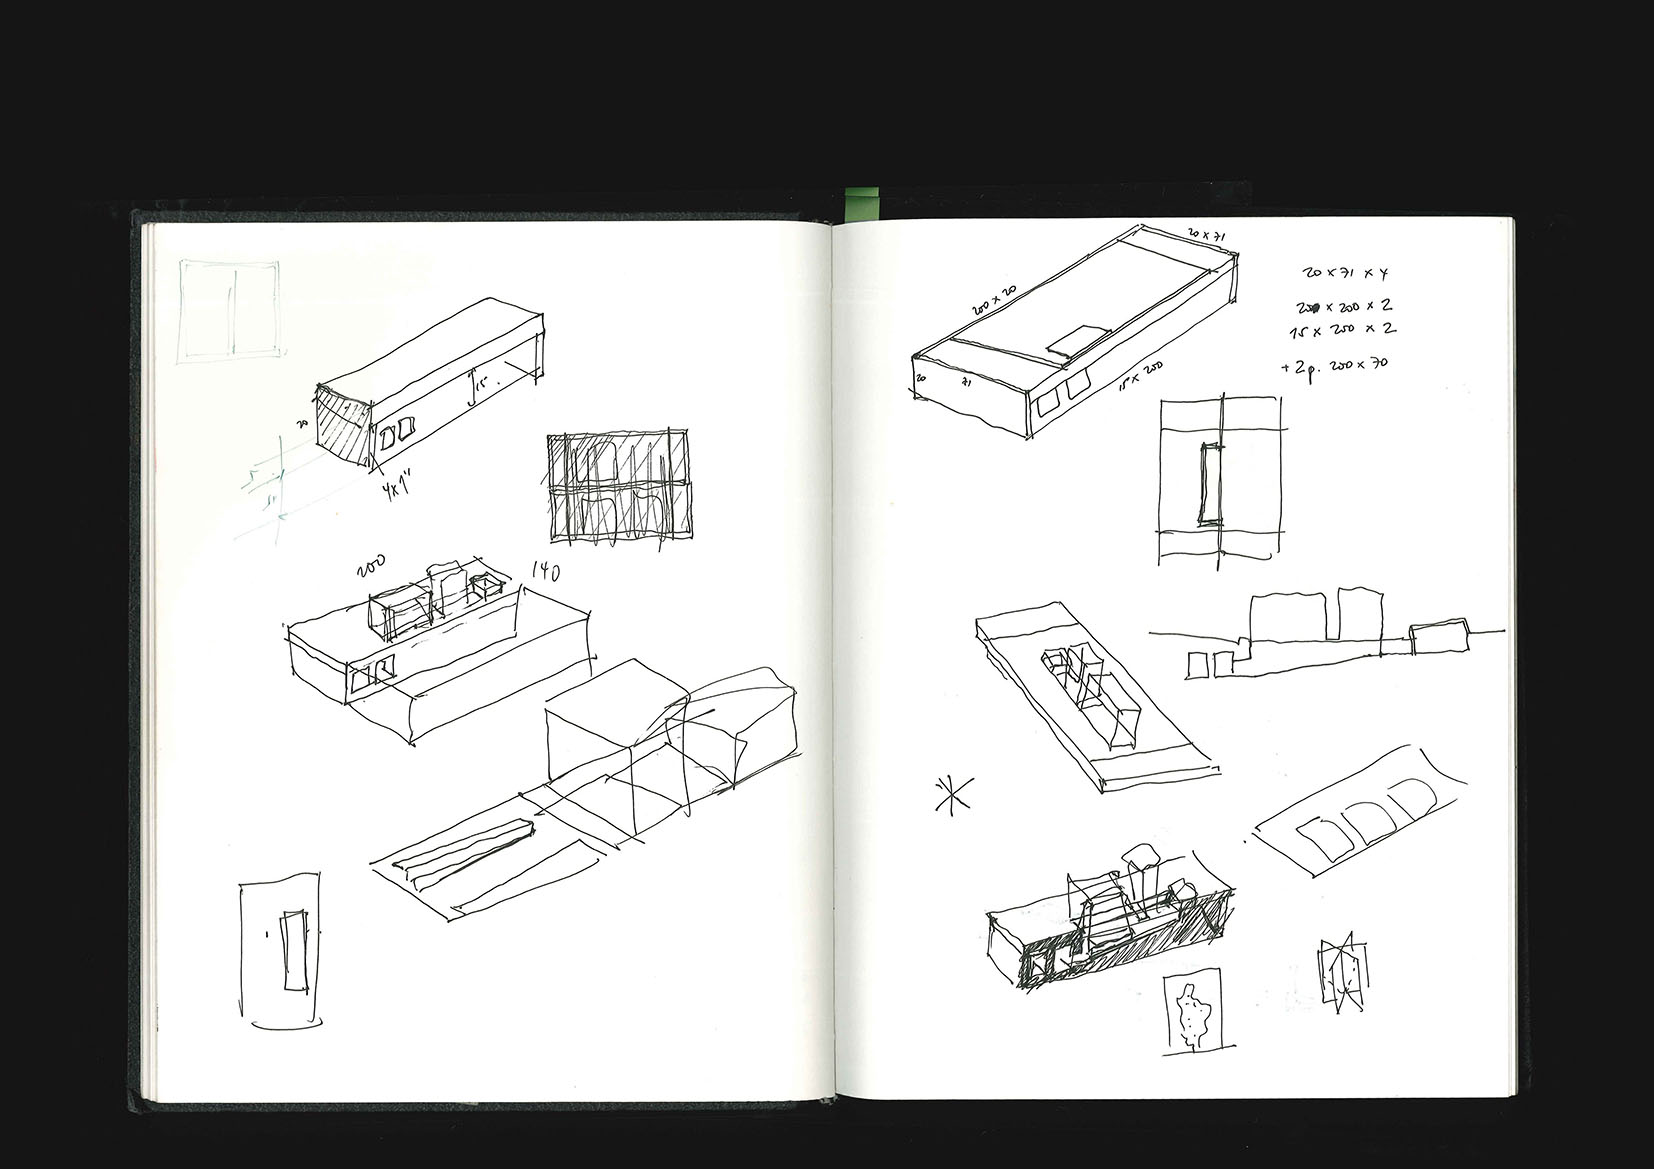 20
15.
4x1"
200
140
20 x 71
200 x 20
20
71
15 x 200
20 x 71 x 4
200 x 200 x 2
15 x 200 x 2
+ 2p. 200 x 70